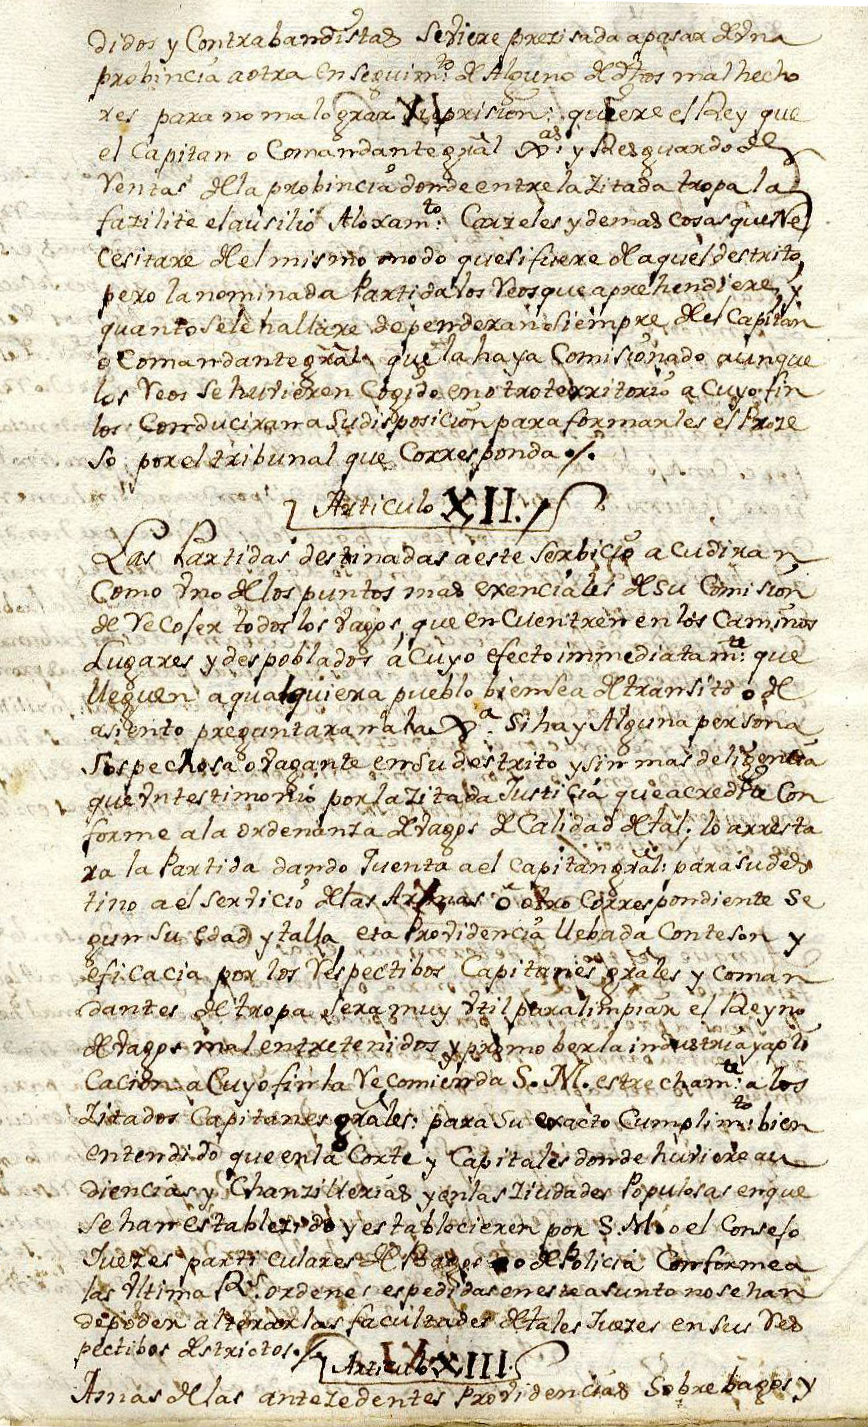 didos y Contrabandistas Seviere prezisada apasar de vna
probincia aotra en seguimto. de Alguno de dhos malhecho
res para no malograr su prision: quiere el Rey que
el Capitan o Comandante gral y Resguardo de
Ventas de la probincia donde entre la zitada tropa la
fazilite el ausilio Aloxamto: Carzeles y demas cosas que Ne
cesitare del mismo modo que si fuere de aquel destrito,
pero la nominada Partida los Reos que aprehendiere, y
quanto sele hallare dependeran Siempre del Capitan
o Comandante gral que la haya Comisionado aunque
los Reos se huvieren Cogido en otro territorio a Cuyo fin
los Conduciran a Su disposicion para formarles el Proze
so por el tribunal que Corresponda ./.
Articulo XII./
Las Partidas destinadas a este Serbicio acudiran
Como vno de los puntos mas exenciales de su Comision
de Recojer todos los vagos, que en Cuentren en los Caminos
Lugares y despoblados a Cuyo efecto immediatamte: que
lleguen a qualquiera pueblo bien sea de transito o de
asiento preguntaran a la Xa. Si hay Alguna persona
Sospechosa o vagante en Su destrito y sin mas deligencia
que vn testimonio por la zitada Justicia que acredite Con
forme a la ordenanza de vagos de Calidad de tal; lo arresta
ra la Partida dando Quenta a el Capitan gral: para su des
tino a el servicio de las Armas ó otro Correspondiente Se
gun su Edad y talla esta Providencia llebada Con teson y
eficacia por los Respectibos Capitanes grales y coman
dantes de tropa Sera muy vtil para limpiar el Reyno
de vagos mal entretenidos y promober la industria y apli
cacion a Cuyo fin la Recomienda S. M. estrechamte: a los
Zitados Capitanes grales: para Su exacto Cumplimto: bien
entendido que en la Corte y Capitales donde huviere au
diencias y Chanzillerias y en las Ziudades Populosas en que
se han establezido y establecieren por S. M. o el Consejo
Juezes particulares de Bagos o de Policia Conforme a
las vltima Rs. ordenes espedidas en este asunto no se han
de poder alterar las facultades de tales Juezes en sus Res
pectibos destrictos./.
Articulo XIII.
A mas de las antezedentes Providencias Sobre bagos y